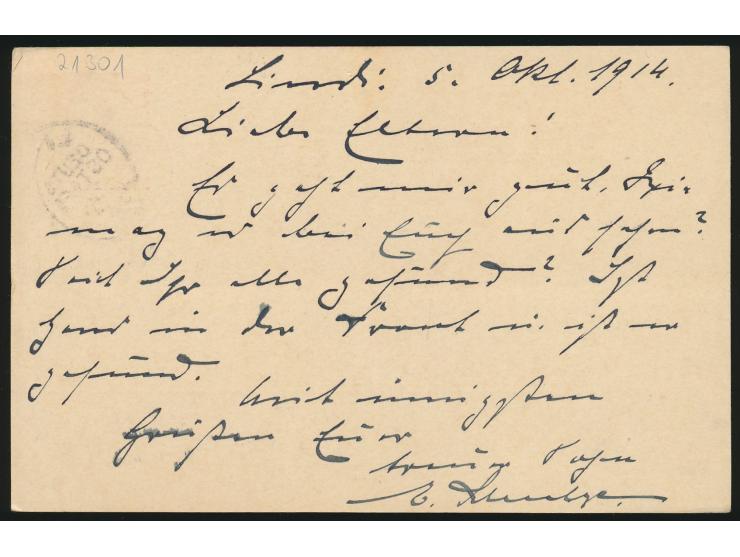 21301
Lindi. 5. Okt. 1914.
Liebe Eltern!
Es geht mir gut.
mag es bei Euch aussehen?
Seid Ihr alle gesund? Ist
in der Front u. ist er
gesund.
Mit innigsten
Grüßen Euer
treuer Sohn